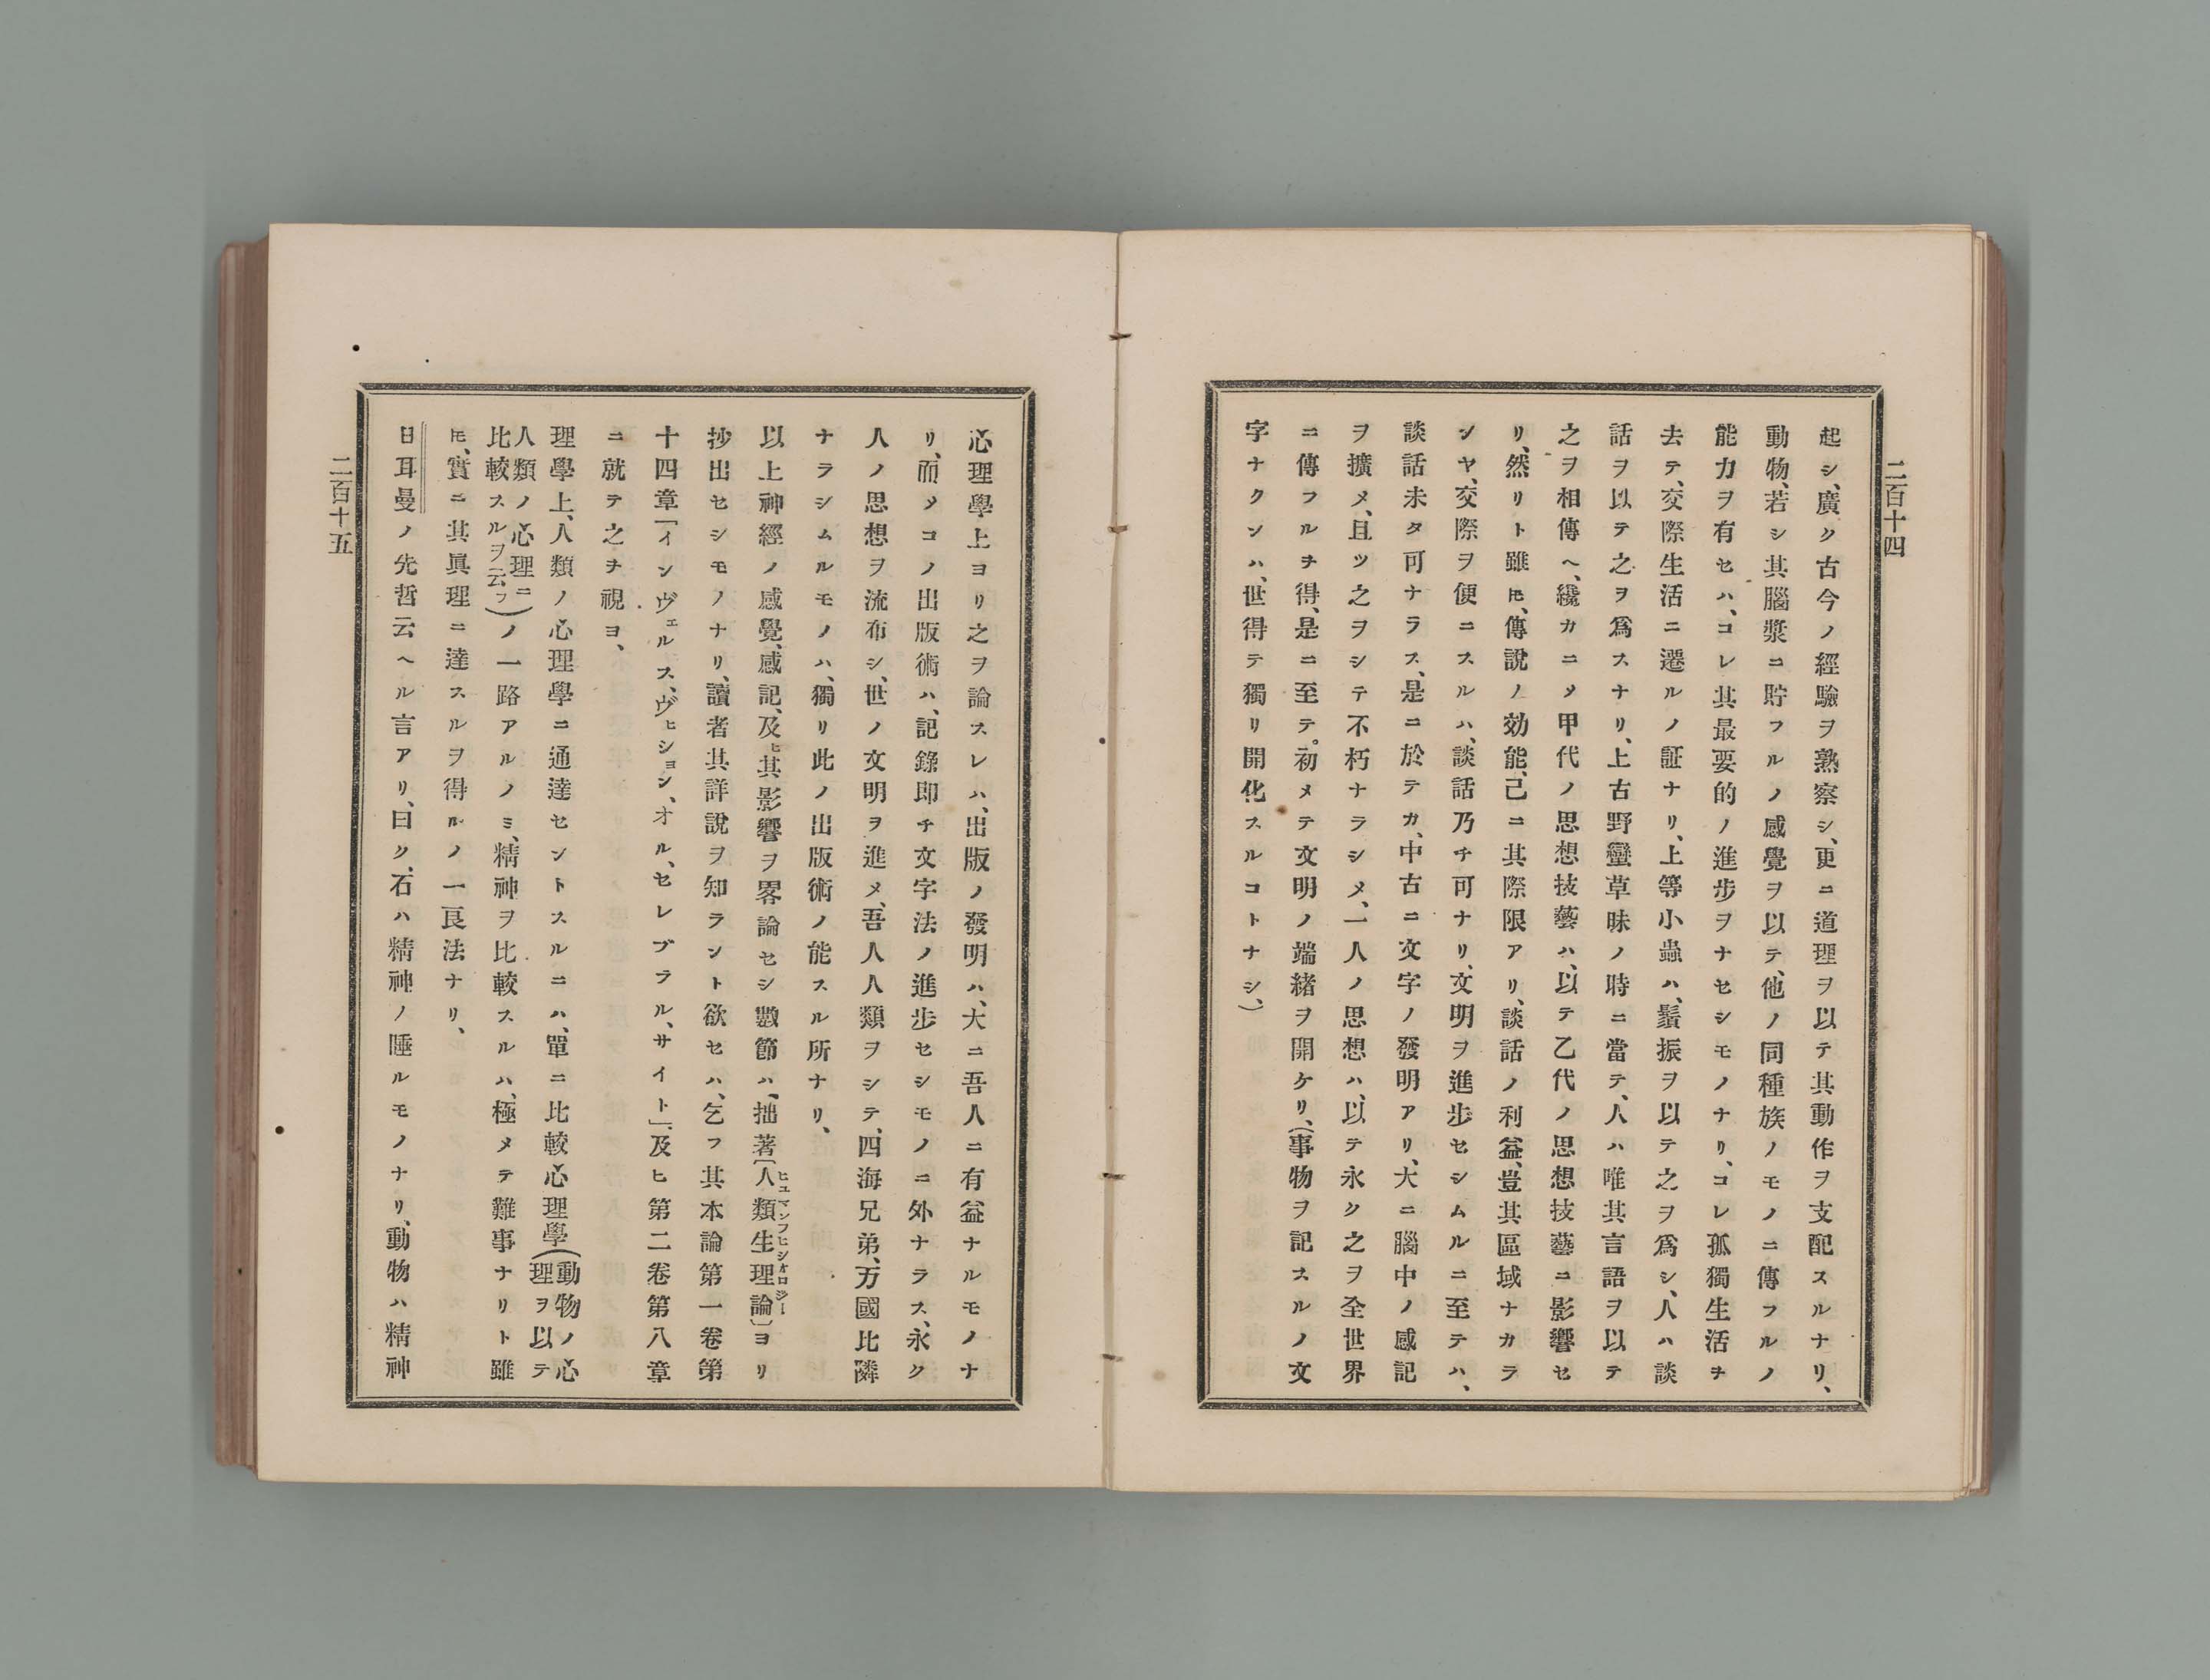 二百十四
起シ、廣ク古今ノ經驗ヲ熟察シ、更ニ道理ヲ以テ其動作ヲ支配スルナリ、
動物、若シ其腦漿ニ貯フルノ感覺ヲ以テ、他ノ同種族ノモノニ傳フルノ
能力ヲ有セハ、コレ其最要的ノ進步ヲナセシモノナリ、コレ孤獨生活チ
去テ、交際生活ニ遷ルノ証ナリ、上等小蟲ハ、鬚振ヲ以テ之ヲ爲シ、人ハ談
話ヲ以テ之ヲ爲スナリ、上古野蠻草昧ノ時ニ當テ、人ハ唯其言語ヲ以テ
之ヲ相傳ヘ、纔カニ〆甲代ノ思想技藝ハ、以テ乙代ノ思想技藝ニ影響セ
リ、然リト雖𪜈、傳說ノ効能、己ニ其際限アリ、談話ノ利益、豈其區域ナカラ
ンヤ、交際ヲ便ニスルハ、談話乃チ可ナリ、文明ヲ進步セシムルニ至テハ、
談話未タ可ナラス、是ニ於テカ、中古ニ文字ノ發明アリ、大ニ腦中ノ感記
ヲ擴メ、且ツ之ヲシテ不朽ナラシメ、一人ノ思想ハ、以テ永ク之ヲ全世界
ニ傳フルチ得、是ニ至テ。初メテ文明ノ端緒ヲ開ケリ、(事物ヲ記スルノ文
字ナクンハ、世得テ獨リ開化スルコトナシ、)
心理學上ヨリ之ヲ論スレハ、出版ノ發明ハ、大ニ吾人ニ有益ナルモノナ
リ、而〆コノ出版術ハ、記錄即チ文字法ノ進步セシモノニ外ナラス、永ク
人ノ思想ヲ流布シ、世ノ文明ヲ進メ、吾人人類ヲシテ、四海兄弟、万國比隣
ナラシムルモノハ、獨リ此ノ出版術ノ能スル所ナリ、
以上神經ノ感覺、感記、及ヒ其影響ヲ畧論セシ數節ハ、拙著〔人類生理論〕ヨリ
ヒユマンフヒシオロジー
抄出セシモノナリ、讀者其詳說ヲ知ラント欲セハ、乞フ其本論第一卷第
十四章「インヴェルス、ヴヒション、オル、セレブラル、サイト」、及ヒ第二卷第八章
ニ就テ之チ視ヨ、
理學上、人類ノ心理學ニ通達セントスルニハ、單ニ比較心理學(動物ノ心
理ヲ以テ
人類ノ心理ニ
比較スルヲ云フ)ノ一路アルノミ、精神ヲ比較スルハ、極メテ難事ナリト雖
𪜈、實ニ其眞理ニ達スルヲ得ルノ一良法ナリ、
日耳曼ノ先哲云ヘル言アリ、曰ク、石ハ精神ノ睡ルモノナリ、動物ハ精神
二百十五